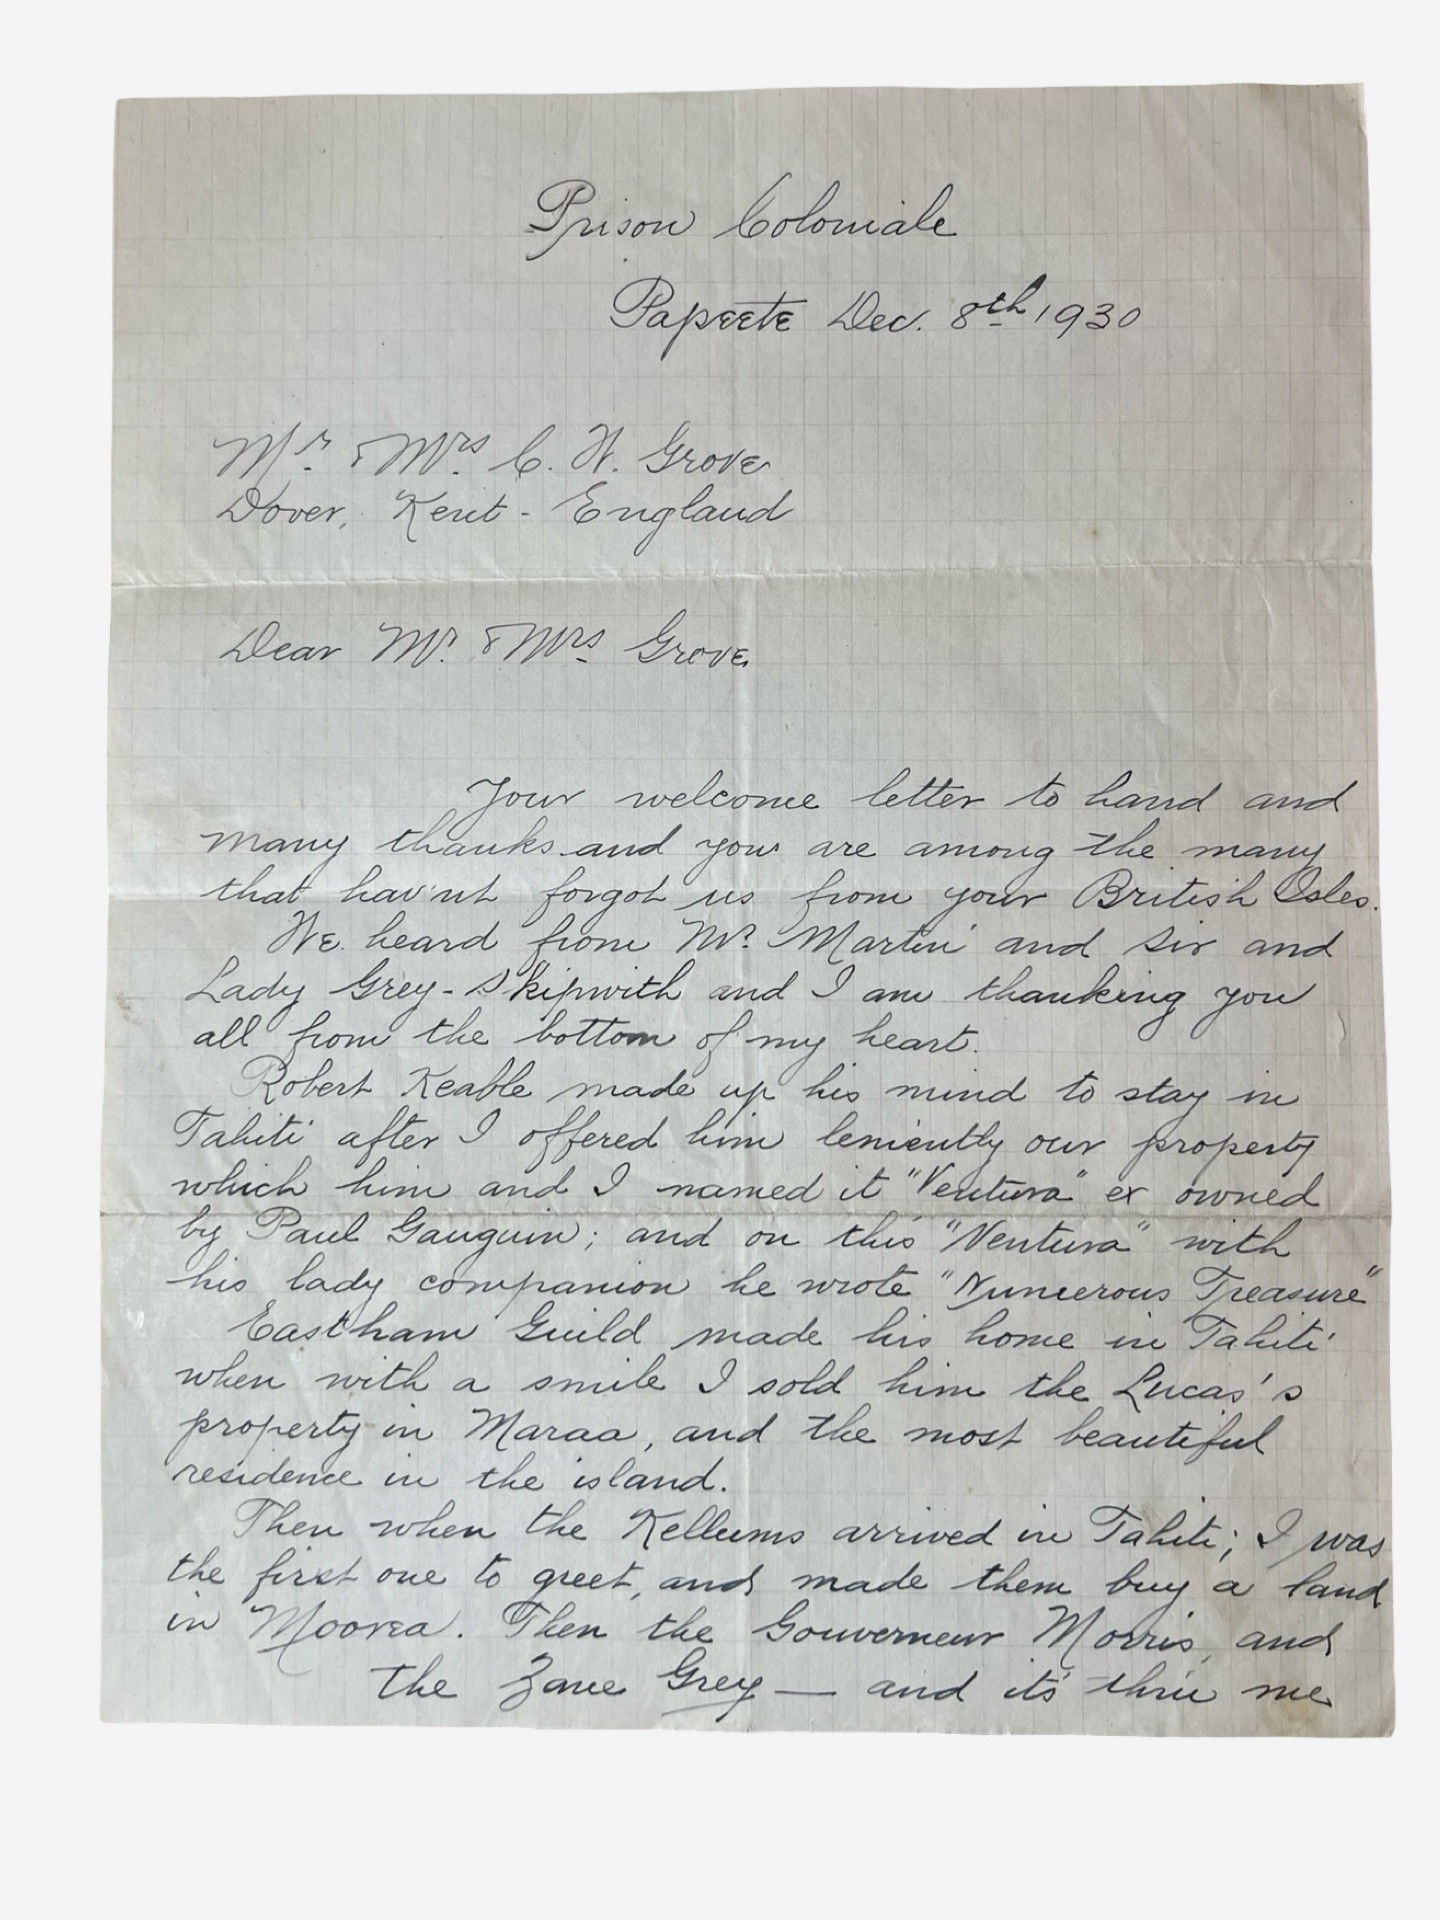 Prison Coloniale
Papeete Dec. 8th 1930
Mr. & Mrs. C. W. Grove
Dover, Kent - England
Dear Mr. & Mrs. Grove
Your welcome letter to hand and
many thanks and you are among the many
that hav'nt forgot us from your British Isles.
We heard from Mr. Martin and Sir and
Lady Grey-Skipwith and I am thanking you
all from the bottom of my heart.
Robert Keable made up his mind to stay in
Tahiti after I offered him leniently our property
which him and I named it "Ventura" ex owned
by Paul Gauguin; and on this "Ventura" with
his lady companion he wrote "Numerous Treasure"
Eastham Guild made his home in Tahiti
when with a smile I sold him the Lucas's
property in Maraa, and the most beautiful
residence in the island.
Then when the Kellums arrived in Tahiti; I was
the first one to greet, and made them buy a land
in Moorea. Then the Gouverneur Morris, and
the Zane Grey — and its thru me